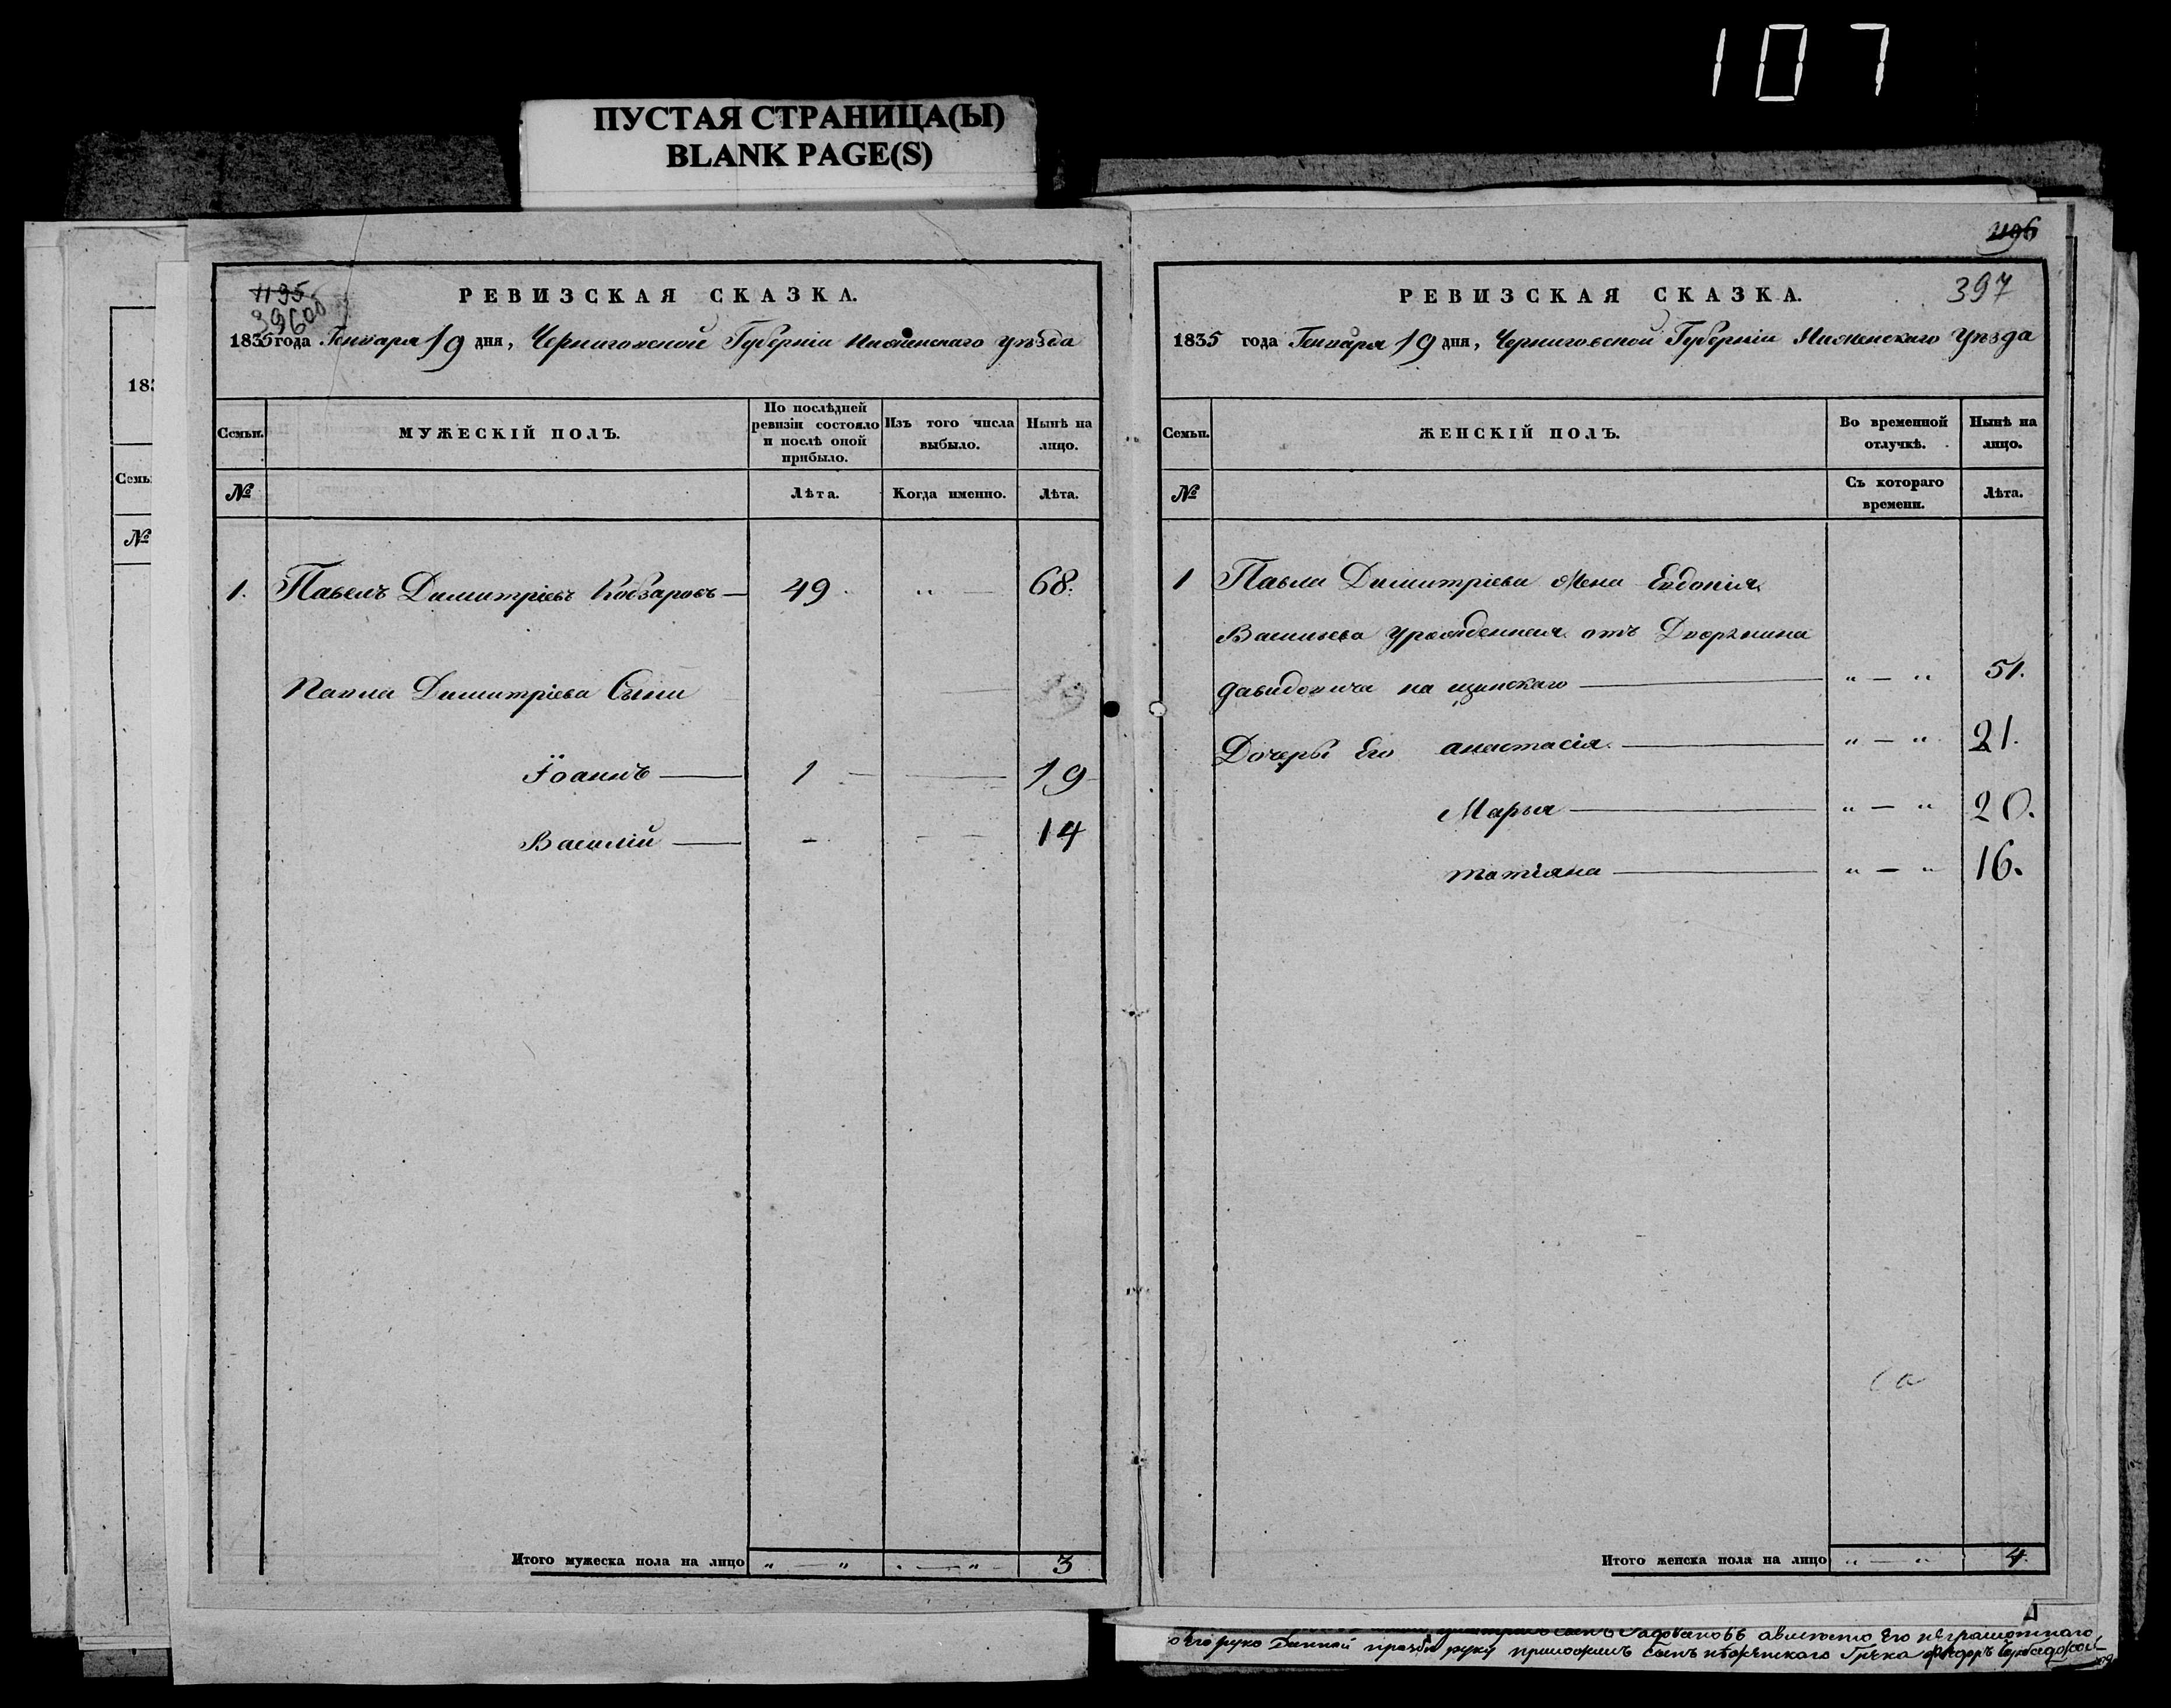 107
ПУСТАЯ СТРАНИЦА(Ы)
BLANK PAGE(S)
183
Семь
№
1195
396об
РЕВИЗСКАЯ СКАЗКА.
1835 года Генваря 19 дня, Черниговской Губерніи Нѣжинскаго уѣзда
Семьи.
МУЖЕСКІЙ ПОЛЪ.
По послѣдней ревизіи состояло и послѣ оной прибыло.
Изъ того числа выбыло.
Нынѣ на лицо.
№
Лѣта.
Когда именно.
Лѣта.
1. Павелъ Димитріевъ Кобзаровъ — 49 „ — 68.
Павла Димитріева Сыни
Іоаннъ — 1 — — 19
Василій — - — 14
Итого мужеска пола на лицо „ — „ „ — „ 3
1196
397
РЕВИЗСКАЯ СКАЗКА.
1835 года Генваря 19 дня, Черниговской Губерніи Нѣженскаго Уѣзда
Семьи.
ЖЕНСКІЙ ПОЛЪ.
Во временной отлучкѣ.
Нынѣ на лицо.
№
Съ котораго времени.
Лѣта.
1 Павла Димитріева Жена Евдокія
Васильева урожденная отъ Дворянина
давидовича — „ — „ 51.
Дочеры Его анастасія — „ — „ 21.
Марья — „ — „ 20.
татіяна — „ — „ 16.
Итого женска пола на лицо „ — „ 4.
руку приложилъ Сынъ Грека